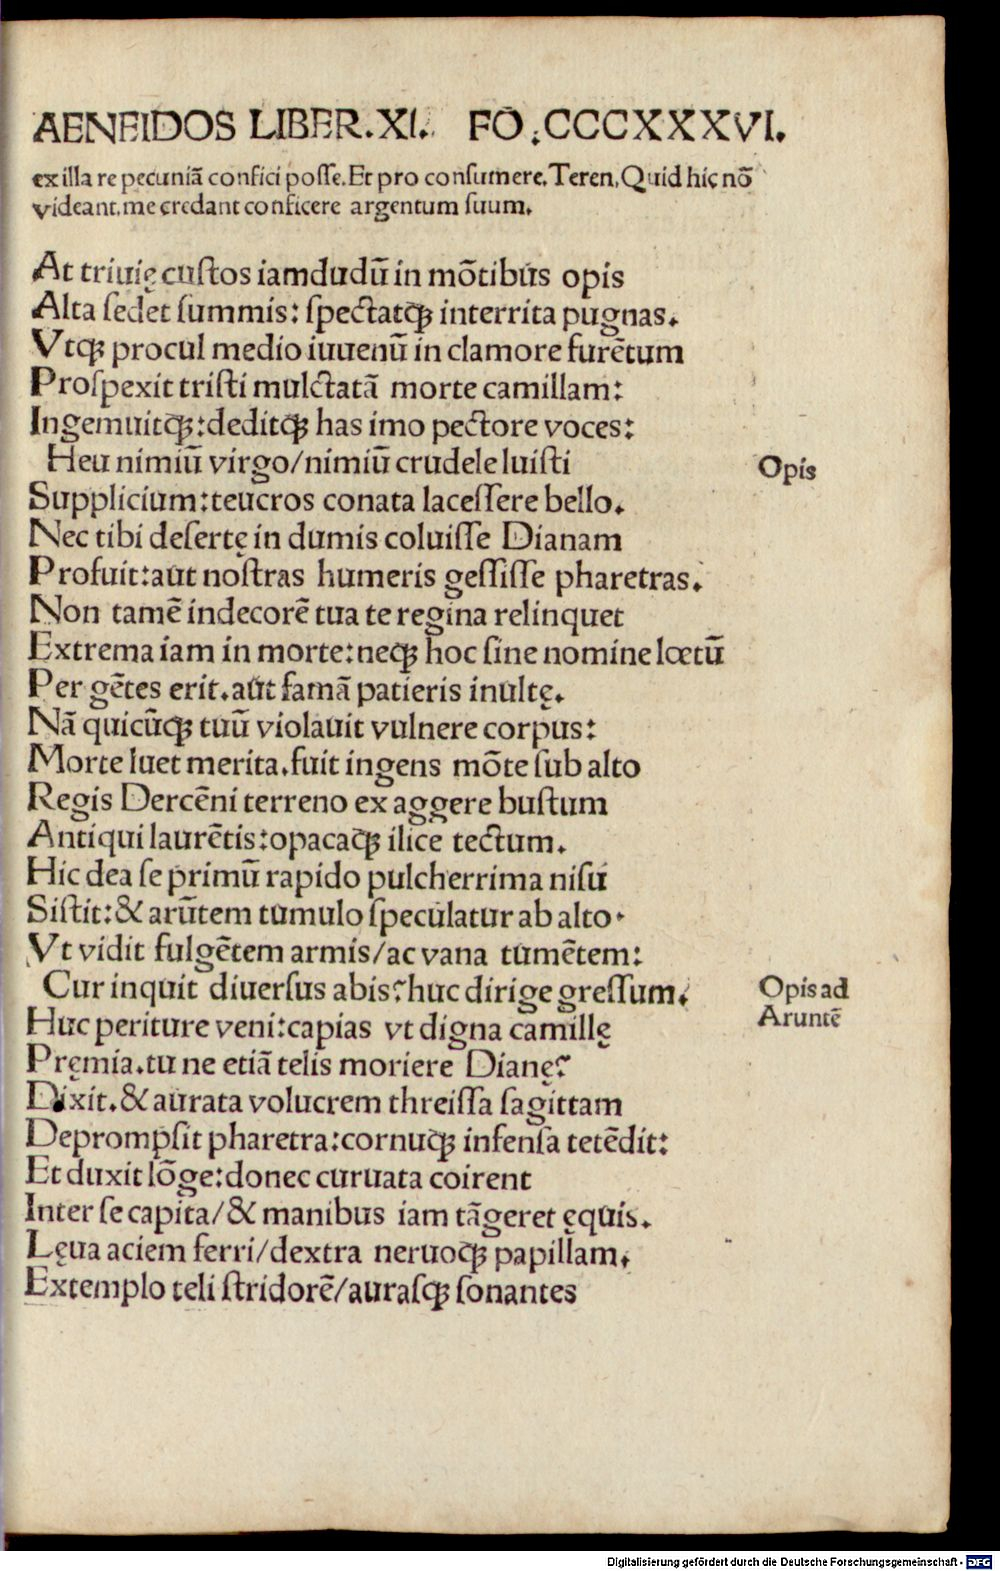 AENEIDOS LIBER.XI. FŌ.CCCXXXVI.
ex illa re pecuniā confici posſe.Et pro consumere.Teren.Quid hic nō
videant.me credant conficere argentum suum.
At triuię custos iamdudū in mōtibus opis
Alta ſedet ſummis: ſpectatqꝫ interrita pugnas.
Vtqꝫ procul medio iuuenū in clamore furētum
Proſpexit triſti mulctatā morte camillam:
Ingemuitqꝫ:deditqꝫ has imo pectore voces:
Heu nimiū virgo/nimiū crudele luiſti
Opis
Supplicium:teucros conata laceſſere bello.
Nec tibi deſertę in dumis coluiſſe Dianam
Profuit:aut noſtras humeris geſſiſſe pharetras.
Non tamē indecorē tua te regina relinquet
Extrema iam in morte:neqꝫ hoc ſine nomine lœtū
Per gētes erit.aut famā patieris inultę.
Nā quicūqꝫ tuū violauit vulnere corpus:
Morte luet merita.fuit ingens mōte ſub alto
Regis Dercēni terreno ex aggere buſtum
Antiqui laurētis:opacaqꝫ ilice tectum.
Hic dea ſe primū rapido pulcherrima niſu
Siſtit:& arūtem tumulo ſpeculatur ab alto.
Vt vidit fulgētem armis/ac vana tumētem:
Cur inquit diuerſus abis?huc dirige greſſum.
Opis ad
Aruntē
Huc periture veni:capias vt digna camillę
Pręmia.tu ne etiā telis moriere Dianę?
Dixit.& aurata volucrem threiſſa ſagittam
Depromp̱ſit pharetra:cornuqꝫ infenſa tetēdit:
Et duxit lōge:donec curuata coirent
Inter ſe capita/& manibus iam tāgeret ęquis.
Lęua aciem ferri/dextra neruoqꝫ papillam.
Extemplo teli ſtridorē/aurasqꝫ ſonantes
Digitalisierung gefördert durch die Deutsche Forschungsgemeinschaft - DFG